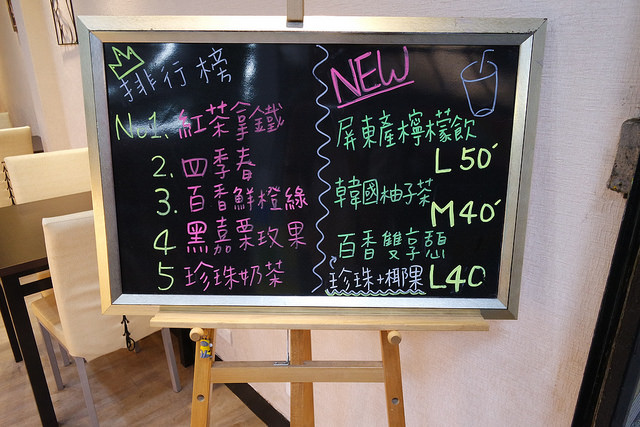 排行榜
No1. 紅茶拿鐵
2. 四季春
3. 百香鮮橙綠
4 黑嘉栗玫果
5 珍珠奶茶
NEW
屏東產檸檬飲
L 50
韓國柚子茶
M40
百香雙享
珍珠+椰果 L40